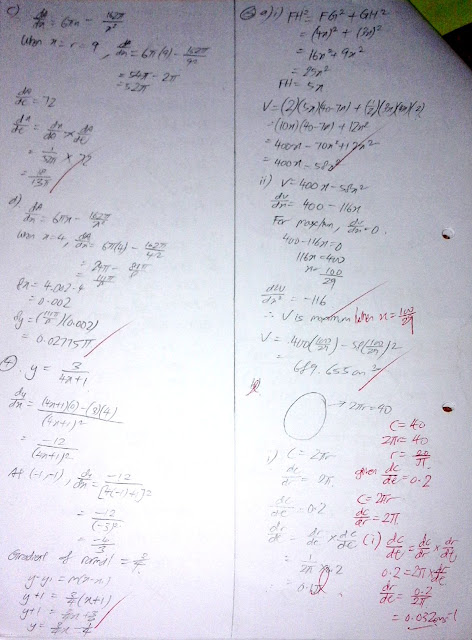 c) dA/dx = 6πx - 162π/x²
When x = r = 9, dA/dx = 6π(9) - 162π/9²
= 54π - 2π
= 52π
dA/dt = 72
= 1/52π × 72
= 18/13π
d) dA/dx = 6πx - 162π/x²
When x = 4, dA/dx = 6π(4) - 162π/4²
δx = 4.002 - 4
= 0.002
(0.002)
= 0.02775π
4. y = 3/(4x+1)
dy/dx = ((4x+1)(0) - (3)(4))/(4x+1)²
= -12/(4x+1)²
At (-1,-1), dy/dx = -12/[4(-1)+1]²
= -12/(-3)²
= -4/3
Gradient of normal = 3/4
y - y₁ = m(x - x₁)
y + 1 = 3/4(x+1)
y + 1 = 3/4x + 3/4
y = 3/4x - 1/4
5 a) i) FH² = FG² + GH²
= (4x)² + (3x)²
= 16x² + 9x²
= 25x²
FH = 5x
V = (2)(5x)(40-7x) + (1/2)(3x)(4x)(2)
= (10x)(40-7x) + 12x²
= 400x - 70x² + 12x²
= 400x - 58x²
ii) V = 400x - 58x²
dV/dx = 400 - 116x
For max/min, dV/dx = 0.
400 - 116x = 0
116x = 400
x = 100/29
d²V/dx² = -116
∴ V is maximum when x = 100/29
V = 400(100/29) - 58(100/29)²
= 689.655 cm³
b)
→ 2πr = 40
C = 40
2πr = 40
r = 20/π
i) C = 2πr
given dC/dt = 0.2
C = 2πr
dC/dr = 2π
dC/dt = 0.2
(i) dC/dt = dC/dr × dr/dt
0.2 = 2π × dr/dt
dr/dt = 0.2/2π
= 0.032